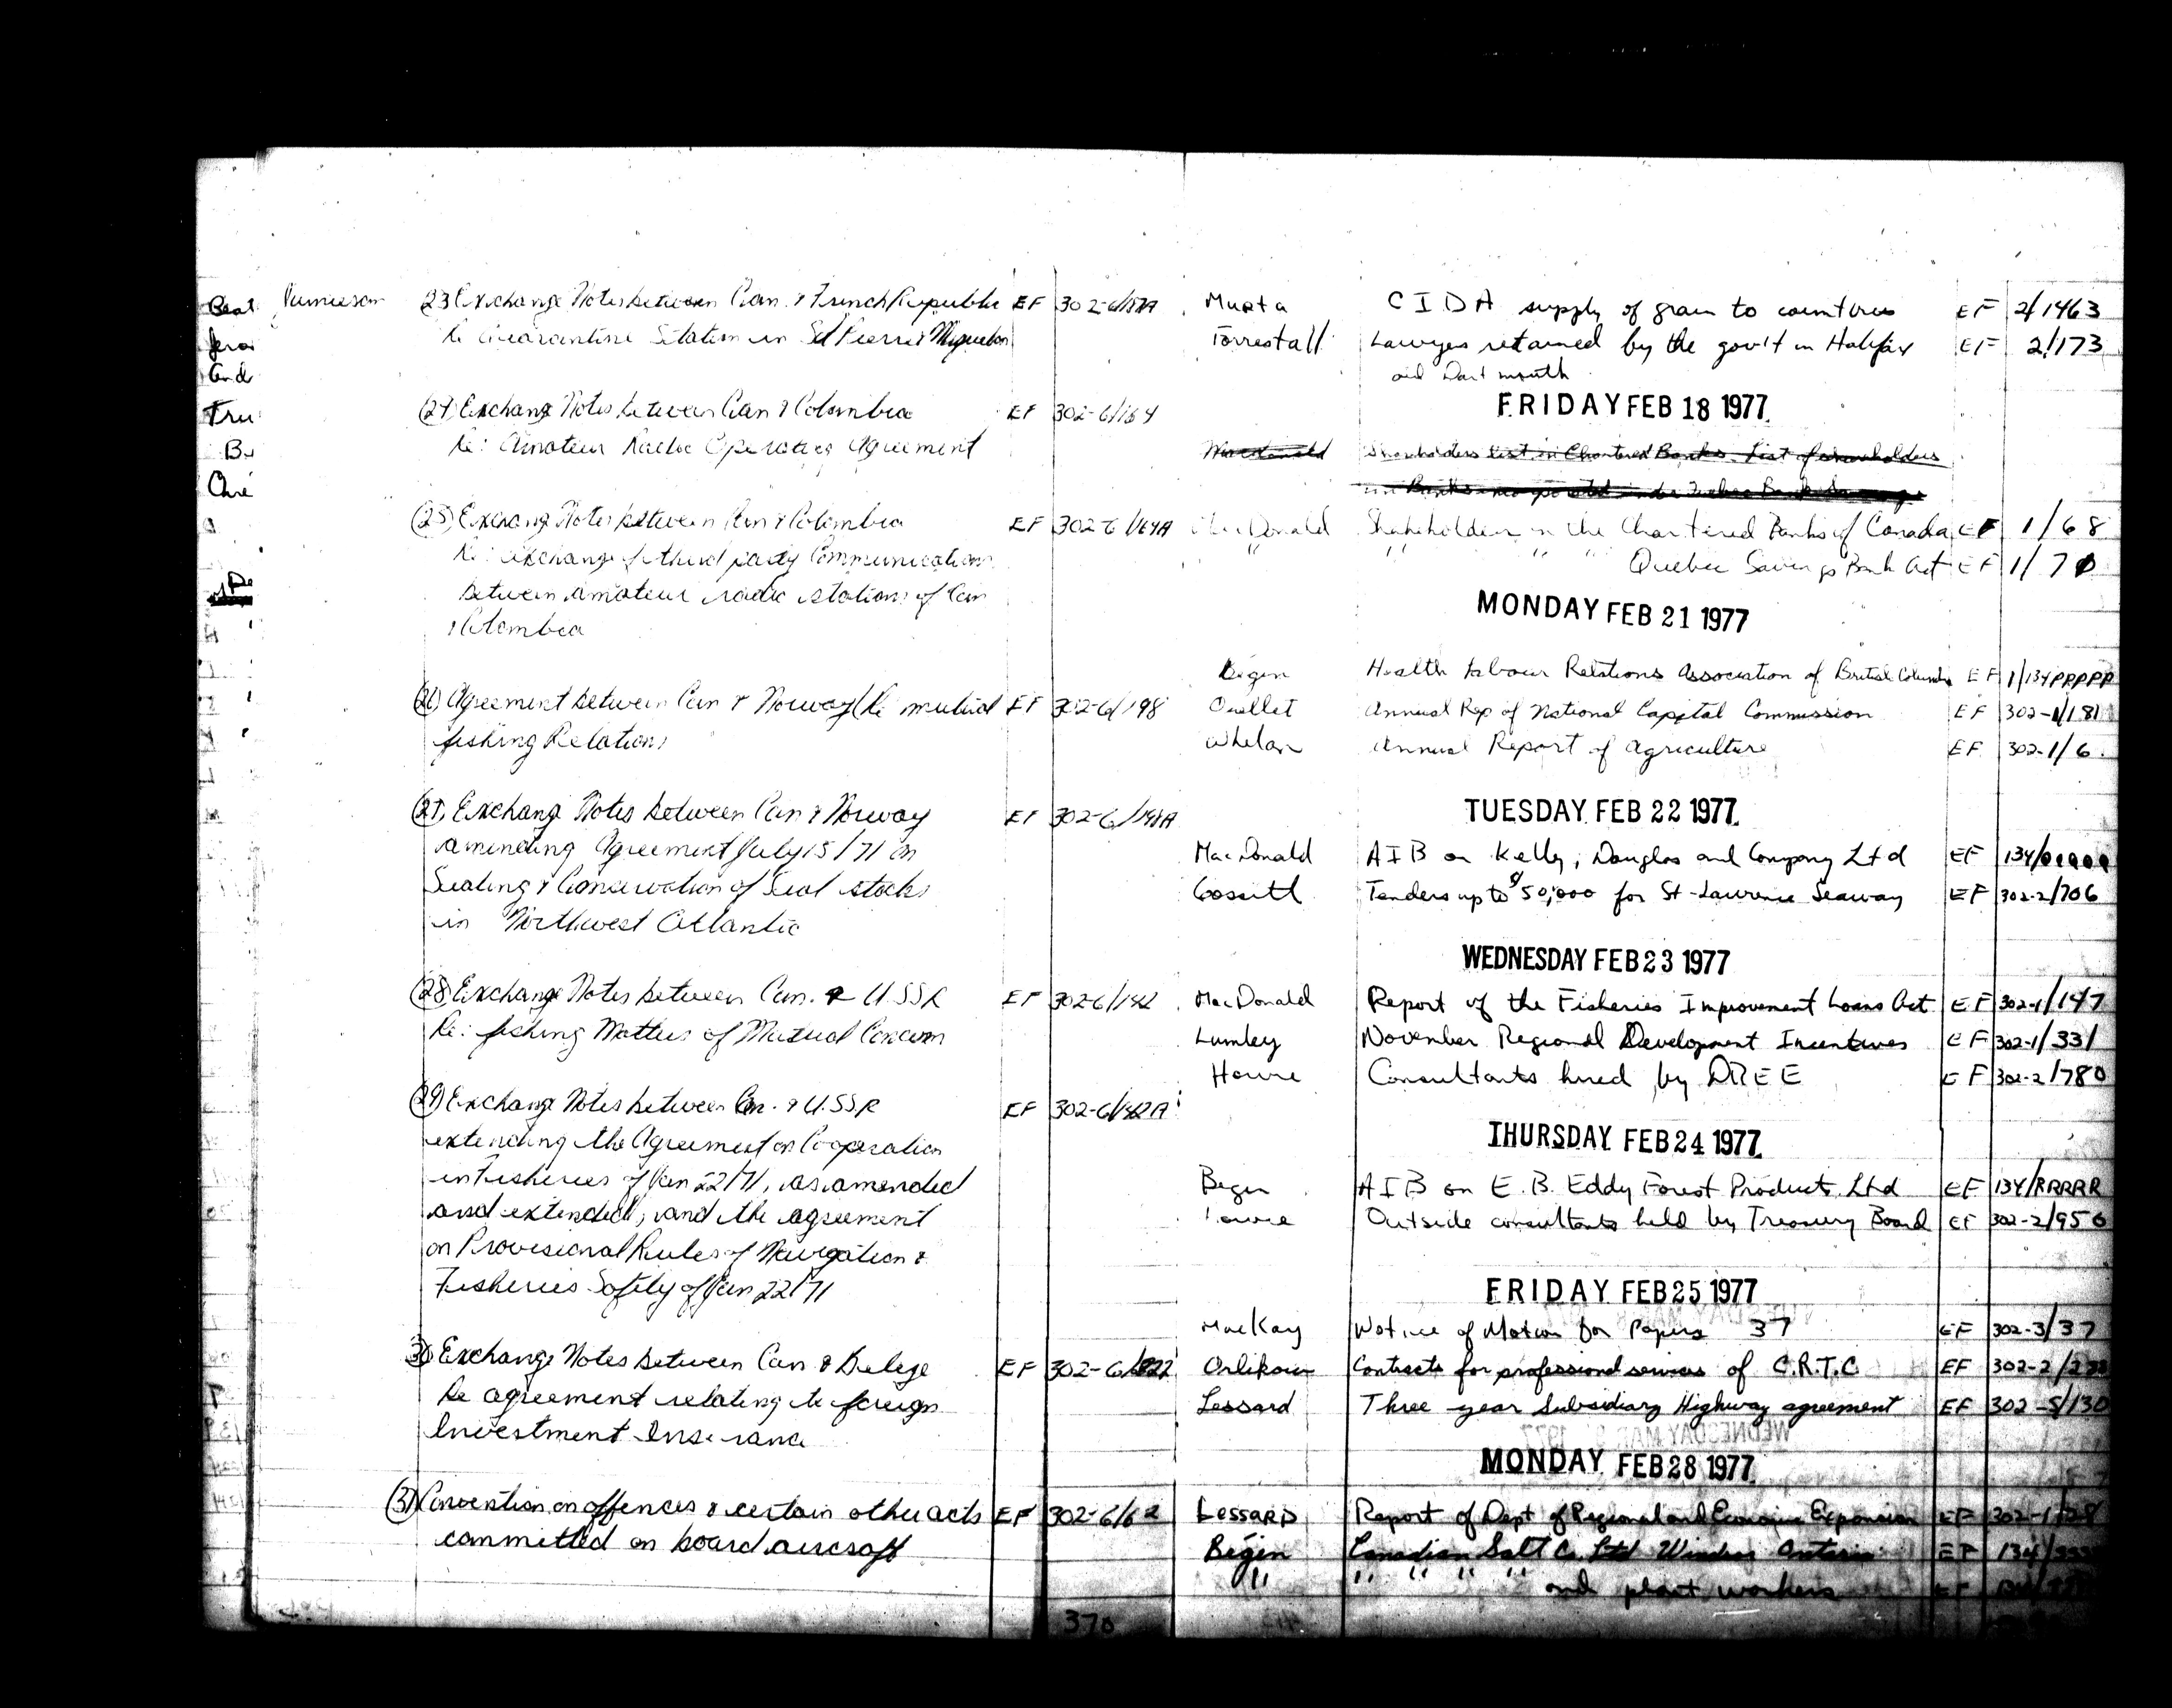 Jamieson (23) Exchange Notes between Can. & French Republic EF 302-6/
Re Quarantine Station in St Pierre & Miquelon
(24) Exchange Notes between Can & Colombia EF 302-6/164
Re: Amateur Radio Operating Agreement
(25) Exchange Notes between Can & Colombia EF 302-6/164A
Re: exchange of third party Communications
between amateur radio stations of Can
& Colombia
(26) Agreement between Can & Norway Re mutual EF 302-6/198
fishing Relations
(27) Exchange Notes between Can & Norway EF 302-6/198A
amending Agreement July 15/71 on
Sealing & Conservation of Seal stocks
in Northwest Atlantic
(28) Exchange Notes between Can. & U.SSR EF 302-6/
Re: fishing Matters of Mutual Concern
(29) Exchange Notes between Can. & U.SSR EF 302-6/
extending the Agreement on Cooperation
in Fisheries of Jan 22/71, as amended
and extended, and the agreement
on Provisional Rules of Navigation &
Fisheries Safety of Jan 22/71
(30) Exchange Notes between Can & Belize EF 302-6/
Re agreement relating to foreign
Investment Insurance
(31) Convention on offences & certain other acts EF 302-6/62
committed on board aircraft
370
Murta CIDA supply of grain to countries EF 2/1463
Forrestall Lawyes retained by the gov't in Halifax EF 2/173
and Dartmouth
FRIDAY FEB 18 1977
Macdonald Shareholders list in Chartered Banks. List of shareholders
in Banks incorporated under Quebec
MacDonald Shareholders in the Chartered Banks of Canada EF 1/68
" " " " Quebec Savings Bank Act EF 1/70
MONDAY FEB 21 1977
Begin Health Labour Relations Association of British Columbia EF 1/134PPPPP
Ouellet Annual Rep of National Capital Commission EF 302-1/181
Whelan Annual Report of Agriculture EF 302-1/6
TUESDAY FEB 22 1977
MacDonald AIB on Kelly, Douglas and Company Ltd EF 134/QQQQQ
Gossitt Tenders up to $50,000 for St-Lawrence Seaway EF 302-2/706
WEDNESDAY FEB 23 1977
MacDonald Report of the Fisheries Improvement Loans Act EF 302-1/147
Lumley November Regional Development Incentives EF 302-1/331
Howie Consultants hired by DREE EF 302-2/780
THURSDAY FEB 24 1977
Begin AIB on E.B. Eddy Forest Products Ltd EF 134/RRRRR
Howie Outside consultants held by Treasury Board EF 302-2/950
FRIDAY FEB 25 1977
MacKay Notice of Motion for Papers 37 EF 302-3/37
Orlikow Contracts for professional services of C.R.T.C EF 302-2/
Lessard Three year Subsidiary Highway agreement EF 302-5/130
MONDAY FEB 28 1977
Lessard Report of Dept of Regional and Economic Expansion EF 302-1/
Begin Canadian Salt Co. Ltd Windsor Ontario EF 134/
" " " " " and plant workers EF